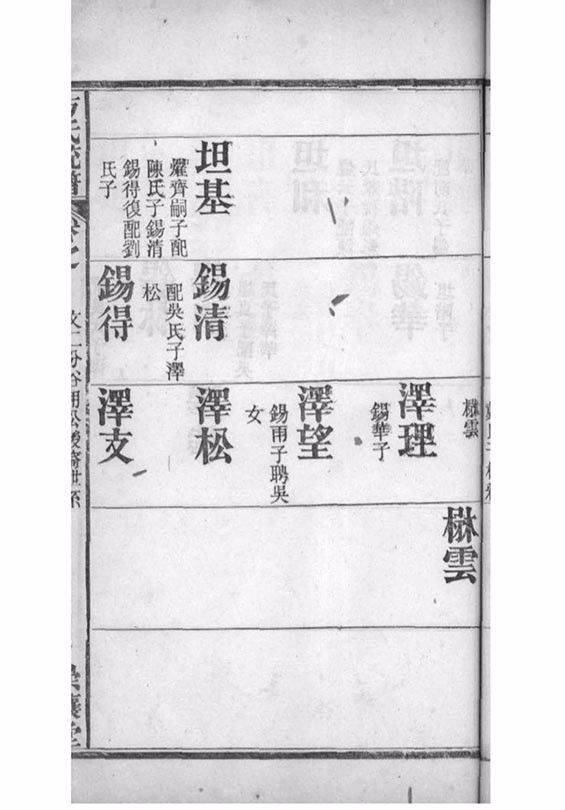 楙雲
楙雲
澤理
錫華子
澤望
錫甬子聘吳
女
坦基
燿齊嗣子配
陳氏子錫清
錫得復配劉
氏子
錫清
配吳氏子澤
松
澤松
錫得
澤支
氏統譜
世系